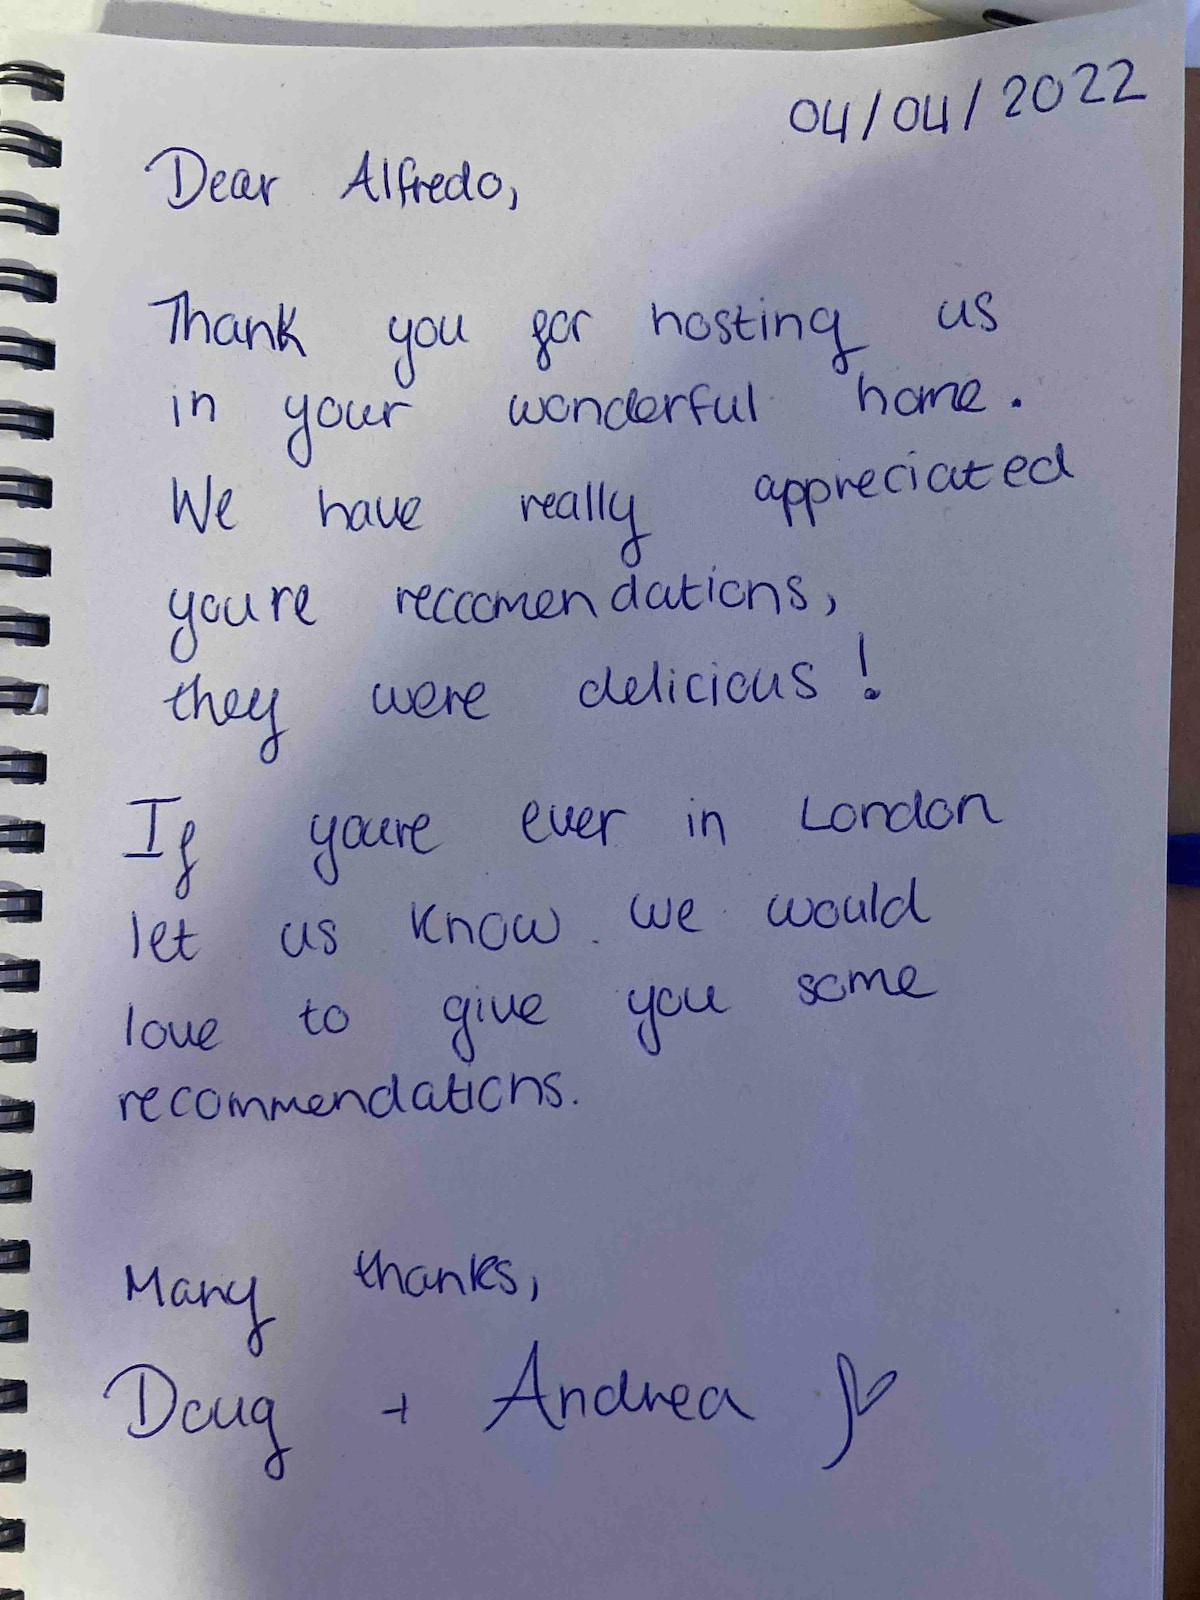 04/04/2022
Dear Alfredo,
Thank you for hosting us
in your wonderful home.
We have really appreciated
youre reccomendations,
they were delicious!
If youre ever in London
let us know. we would
love to give you some
recommendations.
Many thanks,
Doug + Andrea